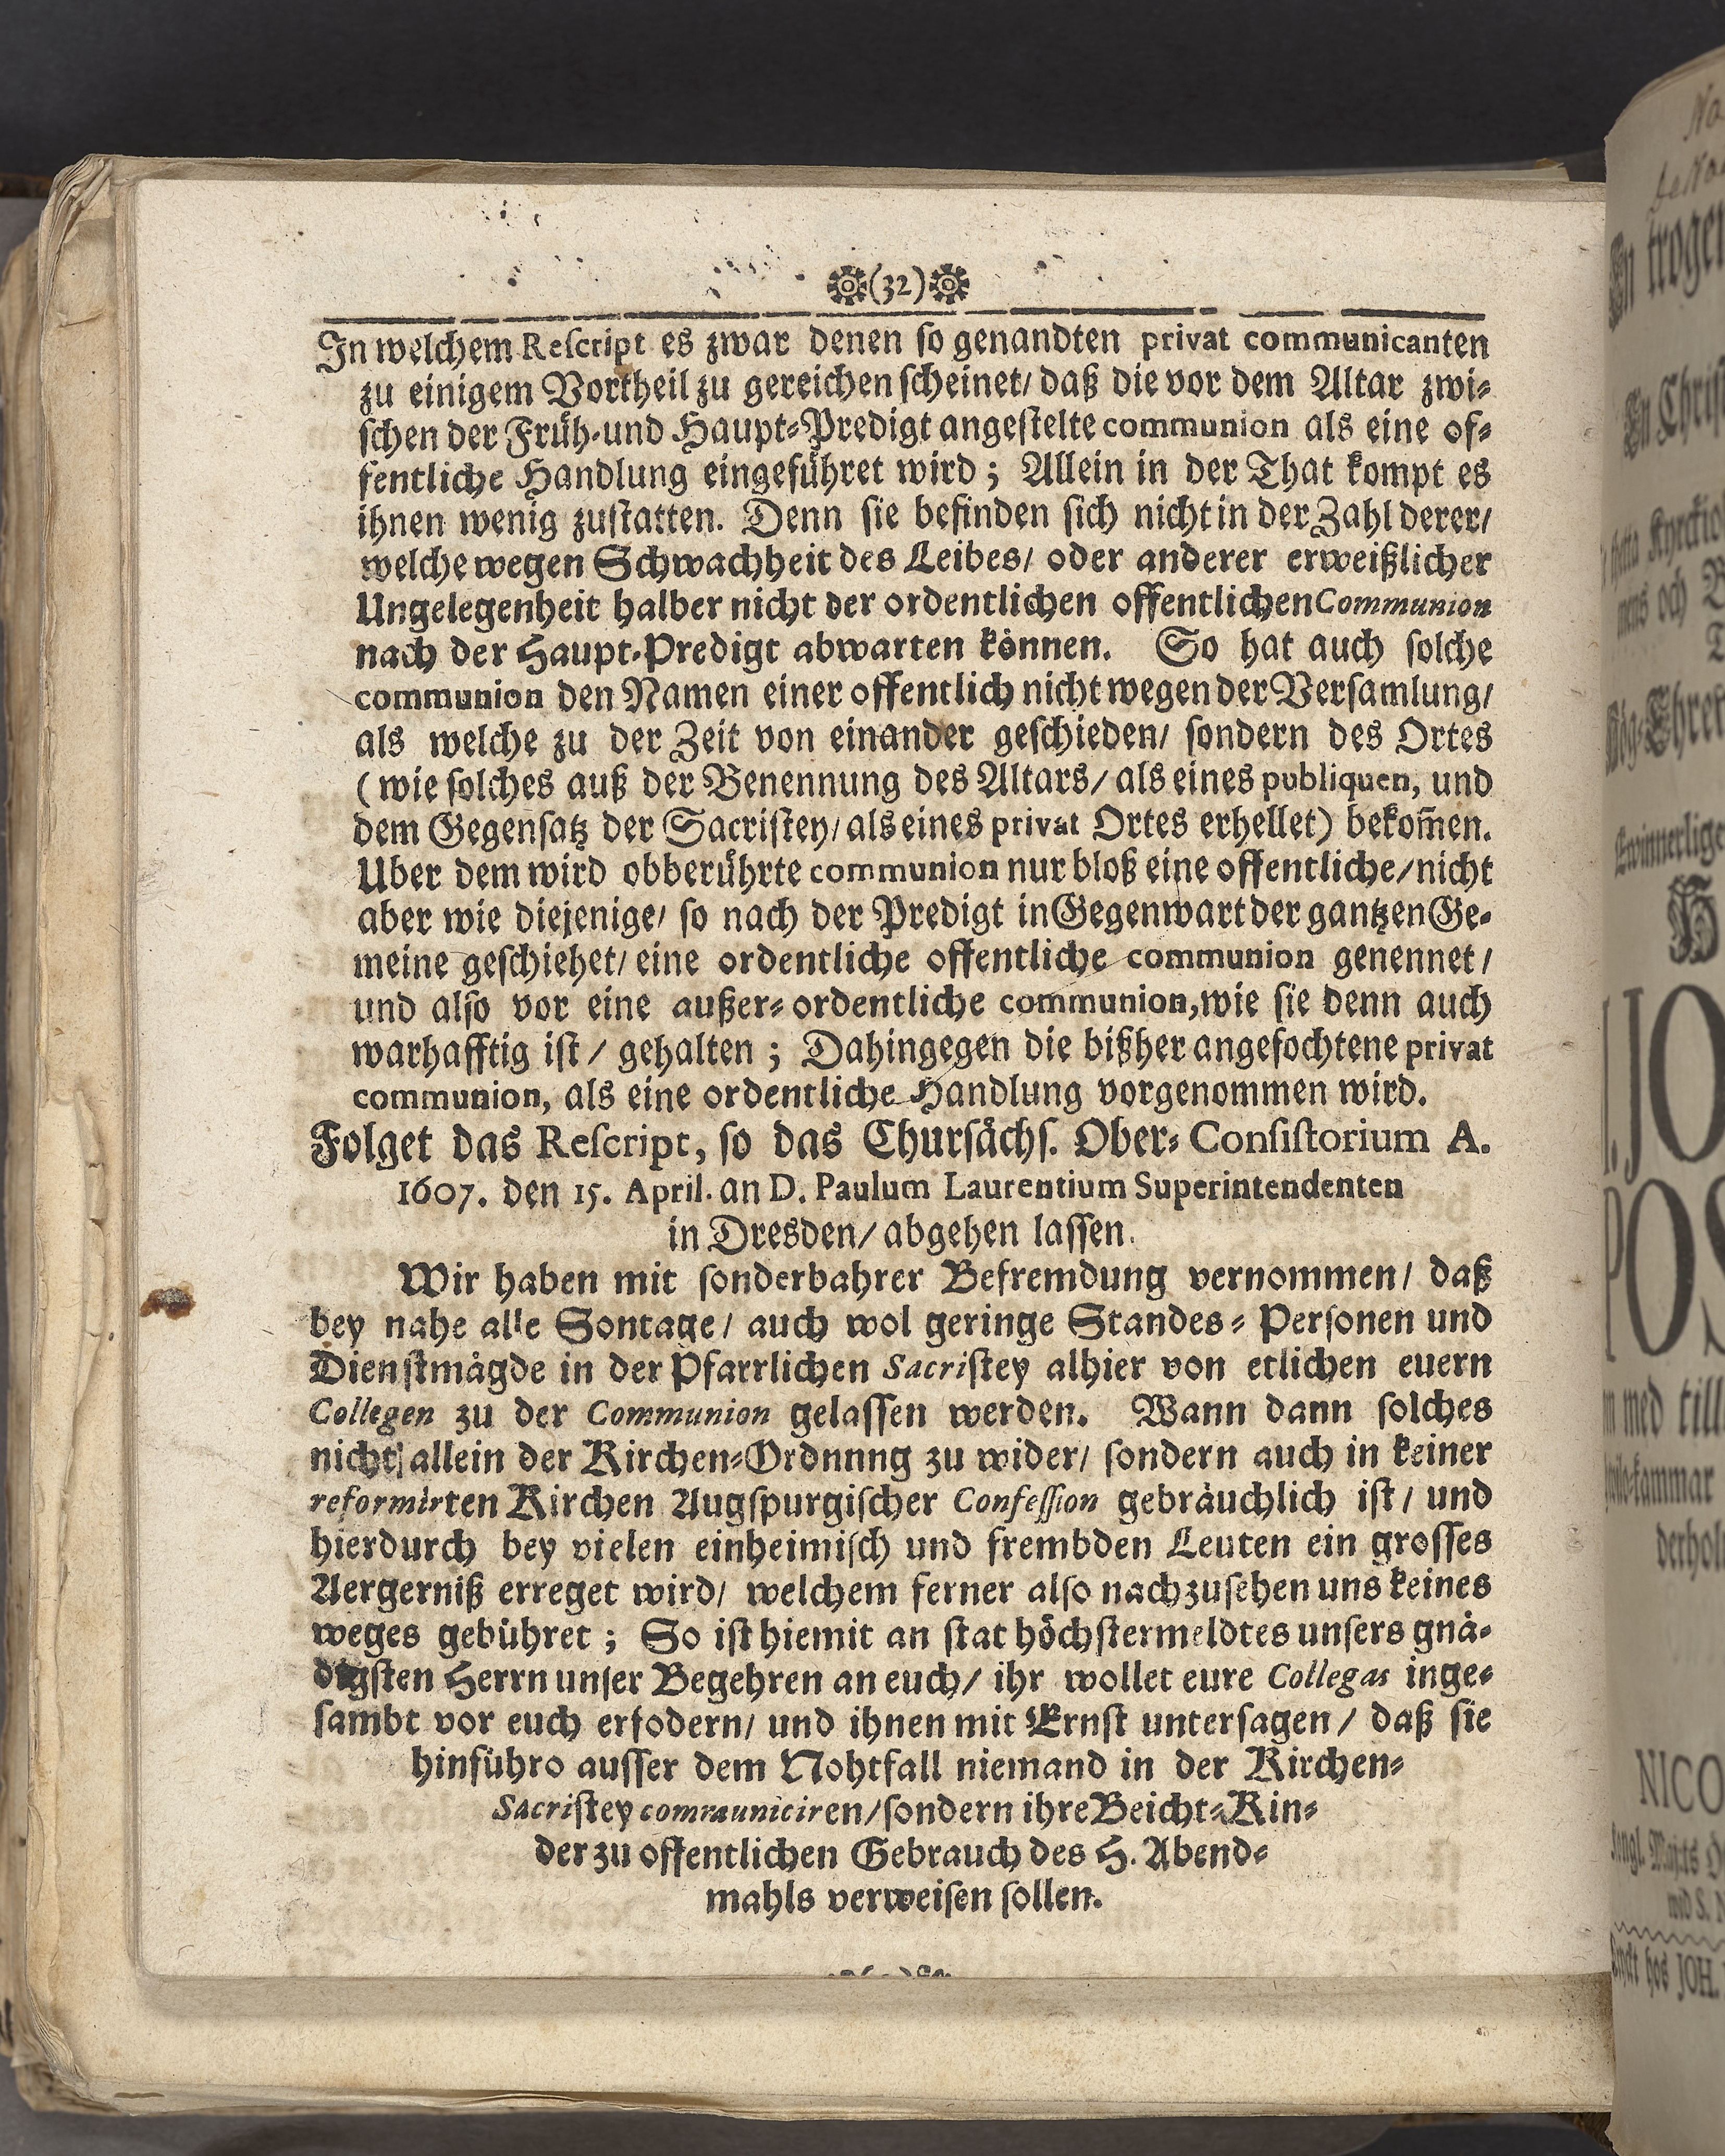 (32)
In welchem Reſcript es zwar denen ſo genandten privat communicanten
zu einigem Vortheil zu gereichen ſcheinet/ daß die vor dem Altar zwi-
ſchen der Früh- und Haupt-Predigt angeſtelte communion als eine of-
fentliche Handlung eingeführet wird; Allein in der That kompt es
ihnen wenig zuſtatten. Denn ſie befinden ſich nicht in der Zahl derer/
welche wegen Schwachheit des Leibes/ oder anderer erweißlicher
Ungelegenheit halber nicht der ordentlichen offentlichen Communion
nach der Haupt-Predigt abwarten können. So hat auch ſolche
communion den Namen einer offentlich nicht wegen der Verſamlung/
als welche zu der Zeit von einander geſchieden/ ſondern des Ortes
(wie ſolches auß der Benennung des Altars/ als eines publiquen, und
dem Gegenſatz der Sacriſtey/ als eines privat Ortes erhellet) bekom̃en.
Uber dem wird obberührte communion nur bloß eine offentliche/ nicht
aber wie diejenige/ ſo nach der Predigt in Gegenwart der gantzen Ge-
meine geſchiehet/ eine ordentliche offentliche communion genennet/
und alſo vor eine außer-ordentliche communion, wie ſie denn auch
warhafftig iſt/ gehalten; Dahingegen die bißher angefochtene privat
communion, als eine ordentliche Handlung vorgenommen wird.
Folget das Reſcript, ſo das Churſächſ. Ober-Conſiſtorium A.
1607. den 15. April. an D. Paulum Laurentium Superintendenten
in Dresden/ abgehen laſſen.
Wir haben mit ſonderbahrer Befremdung vernommen/ daß
bey nahe alle Sontage/ auch wol geringe Standes-Perſonen und
Dienſtmägde in der Pfarrlichen Sacriſtey alhier von etlichen euern
Collegen zu der Communion gelaſſen werden. Wann dann ſolches
nicht allein der Kirchen-Ordnnng zu wider/ ſondern auch in keiner
reformirten Kirchen Augſpurgiſcher Confeſſion gebräuchlich iſt/ und
hierdurch bey vielen einheimiſch und frembden Leuten ein groſſes
Aergerniß erreget wird/ welchem ferner alſo nachzuſehen uns keines
weges gebühret; So iſt hiemit an ſtat höchſtermeldtes unſers gnä-
digſten Herrn unſer Begehren an euch/ ihr wollet eure Collegas inge-
ſambt vor euch erfodern/ und ihnen mit Ernſt unterſagen/ daß ſie
hinführo auſſer dem Nohtfall niemand in der Kirchen-
Sacriſtey communiciren/ ſondern ihre Beicht-Kin-
der zu offentlichen Gebrauch des H. Abend-
mahls verweiſen ſollen.